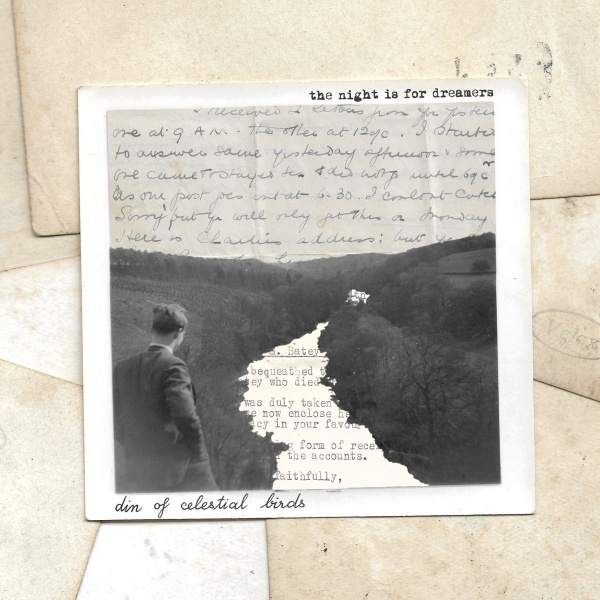 the night is for dreamers
received 2 letters from you yester
one at 9 A.N. the other at 12
I started
to answer same yesterday afternoon & some
one came & stayed tea & did not go until 6
As our post goes out at 6-30. I couldnt catch
Sorry but you will only get this on Monday
Here is Charlies address; but
B. Batey
bequeathed
ey who died
was duly taken
e now enclose he
cy in your favou
g form of recei
the accounts.
faithfully,
din of celestial birds